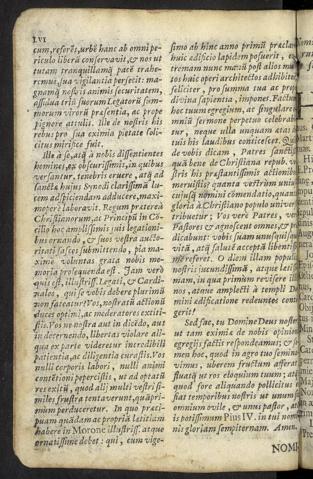 LVI
cum, referes, urbē hanc ab omni pe-
riculo liberā conservavit, & nos ut
tutam tranquillamq́ pacē trahe-
remus, sua vigilantia perfecit: ma-
gnamq́ nostri animis securitatem,
assidua triū suorum Legatorū sum-
morum virorū præsentia, ac prope
pignore attulit. Ille de nostris his
rebus pro sua eximia pietate soli-
citus mirifice fuit.
Ille à se, atq́ à nobis dissentientes
homines, ex obscurissimis, in quibus
versantur, tenebris eruere, atq́ ad
sanctæ hujus Synodi clarissimā lu-
cem adspiciendam adducere, maxi-
mopere laboravit. Regum præterea
Christianorum, ac Principū in Co-
cilio hoc amplissimis suis legationi-
bus ornando, & suos vestra aucto-
ritati fasces submittendo, piā ma-
ximè voluntas grata nobis me-
moria prosequenda est. Jam verò
quis est, illustriss. Legati, & Cardi-
nales, qui se vobis debere plurimū
non fateatur? Vos, nostratū actionū
duces optimi, ac moderatores extiti-
stis. Vos ne nostra aut in dicēdo, aut
in decernendo, libertas violare ali-
qua ex parte videretur incredibili
patientia, ac diligentia curastis. Vos
nulli corporis labori, nulli animi
contētioni pepercistis, ut ad optatū
res exitū, quod alij multi vestri si-
miles frustra tentaverunt, quāpri-
mùm perduceretur. In quo præci-
puam quādam ac propriā lætitiam
habere in Morone illustriss. atque
ornatissime debet: qui, cum vige-
simo ab hinc anno primū præclar
huic ædificio lapidem posuerit, ex-
tremam nunc manū post alios mul-
tos huic operi architectos adhibitos
feliciter, pro summa tua ac prop
divina sapientia, impones. Factum
hoc tuum egregium, ac singulare o-
mniū sermone perpetuo celebrabi-
tur, neque ulla unquam ætas
tuis his laudibus conticescet. Quid
de vobis dicam, Patres sanctis
quā bene de Christiana repub.
stris his præstantissimis actionib
meruistis? quanta vestrūm unius-
cujusq́ nomini cōmendatio, quanta
gloria à Christiano populo univer
tribuetur; Vos verè Patres, ver
Pastores & agnoscent omnes, & præ
dicabunt: vobis suam unusquisq
vitā, atq́ salutē acceptā libentis
mè referet. O diem illum populis
nostris jucundissimā, atque lætis
mam, in qua primùm revisere
nos, atque amplecti à templi Do
mini ædificatione redeuntes con
gerit!
Sed fac, tu Domine Deus noster
ut tam eximiæ de nobis opinioni
egregijs factis respondeamus; & se
men hoc, quod in agro tuo semina
vimus, uberem fructum afferat,
fluatq́ ut ros eloquium tuum: at
quod fore aliquando pollicitus
fiat temporibus nostris ut unum
omnium ovile, & unus pastor, at
is potissimum Pius IV. in tui nomi-
nis gloriam sempiternam. Amen.
NOMI